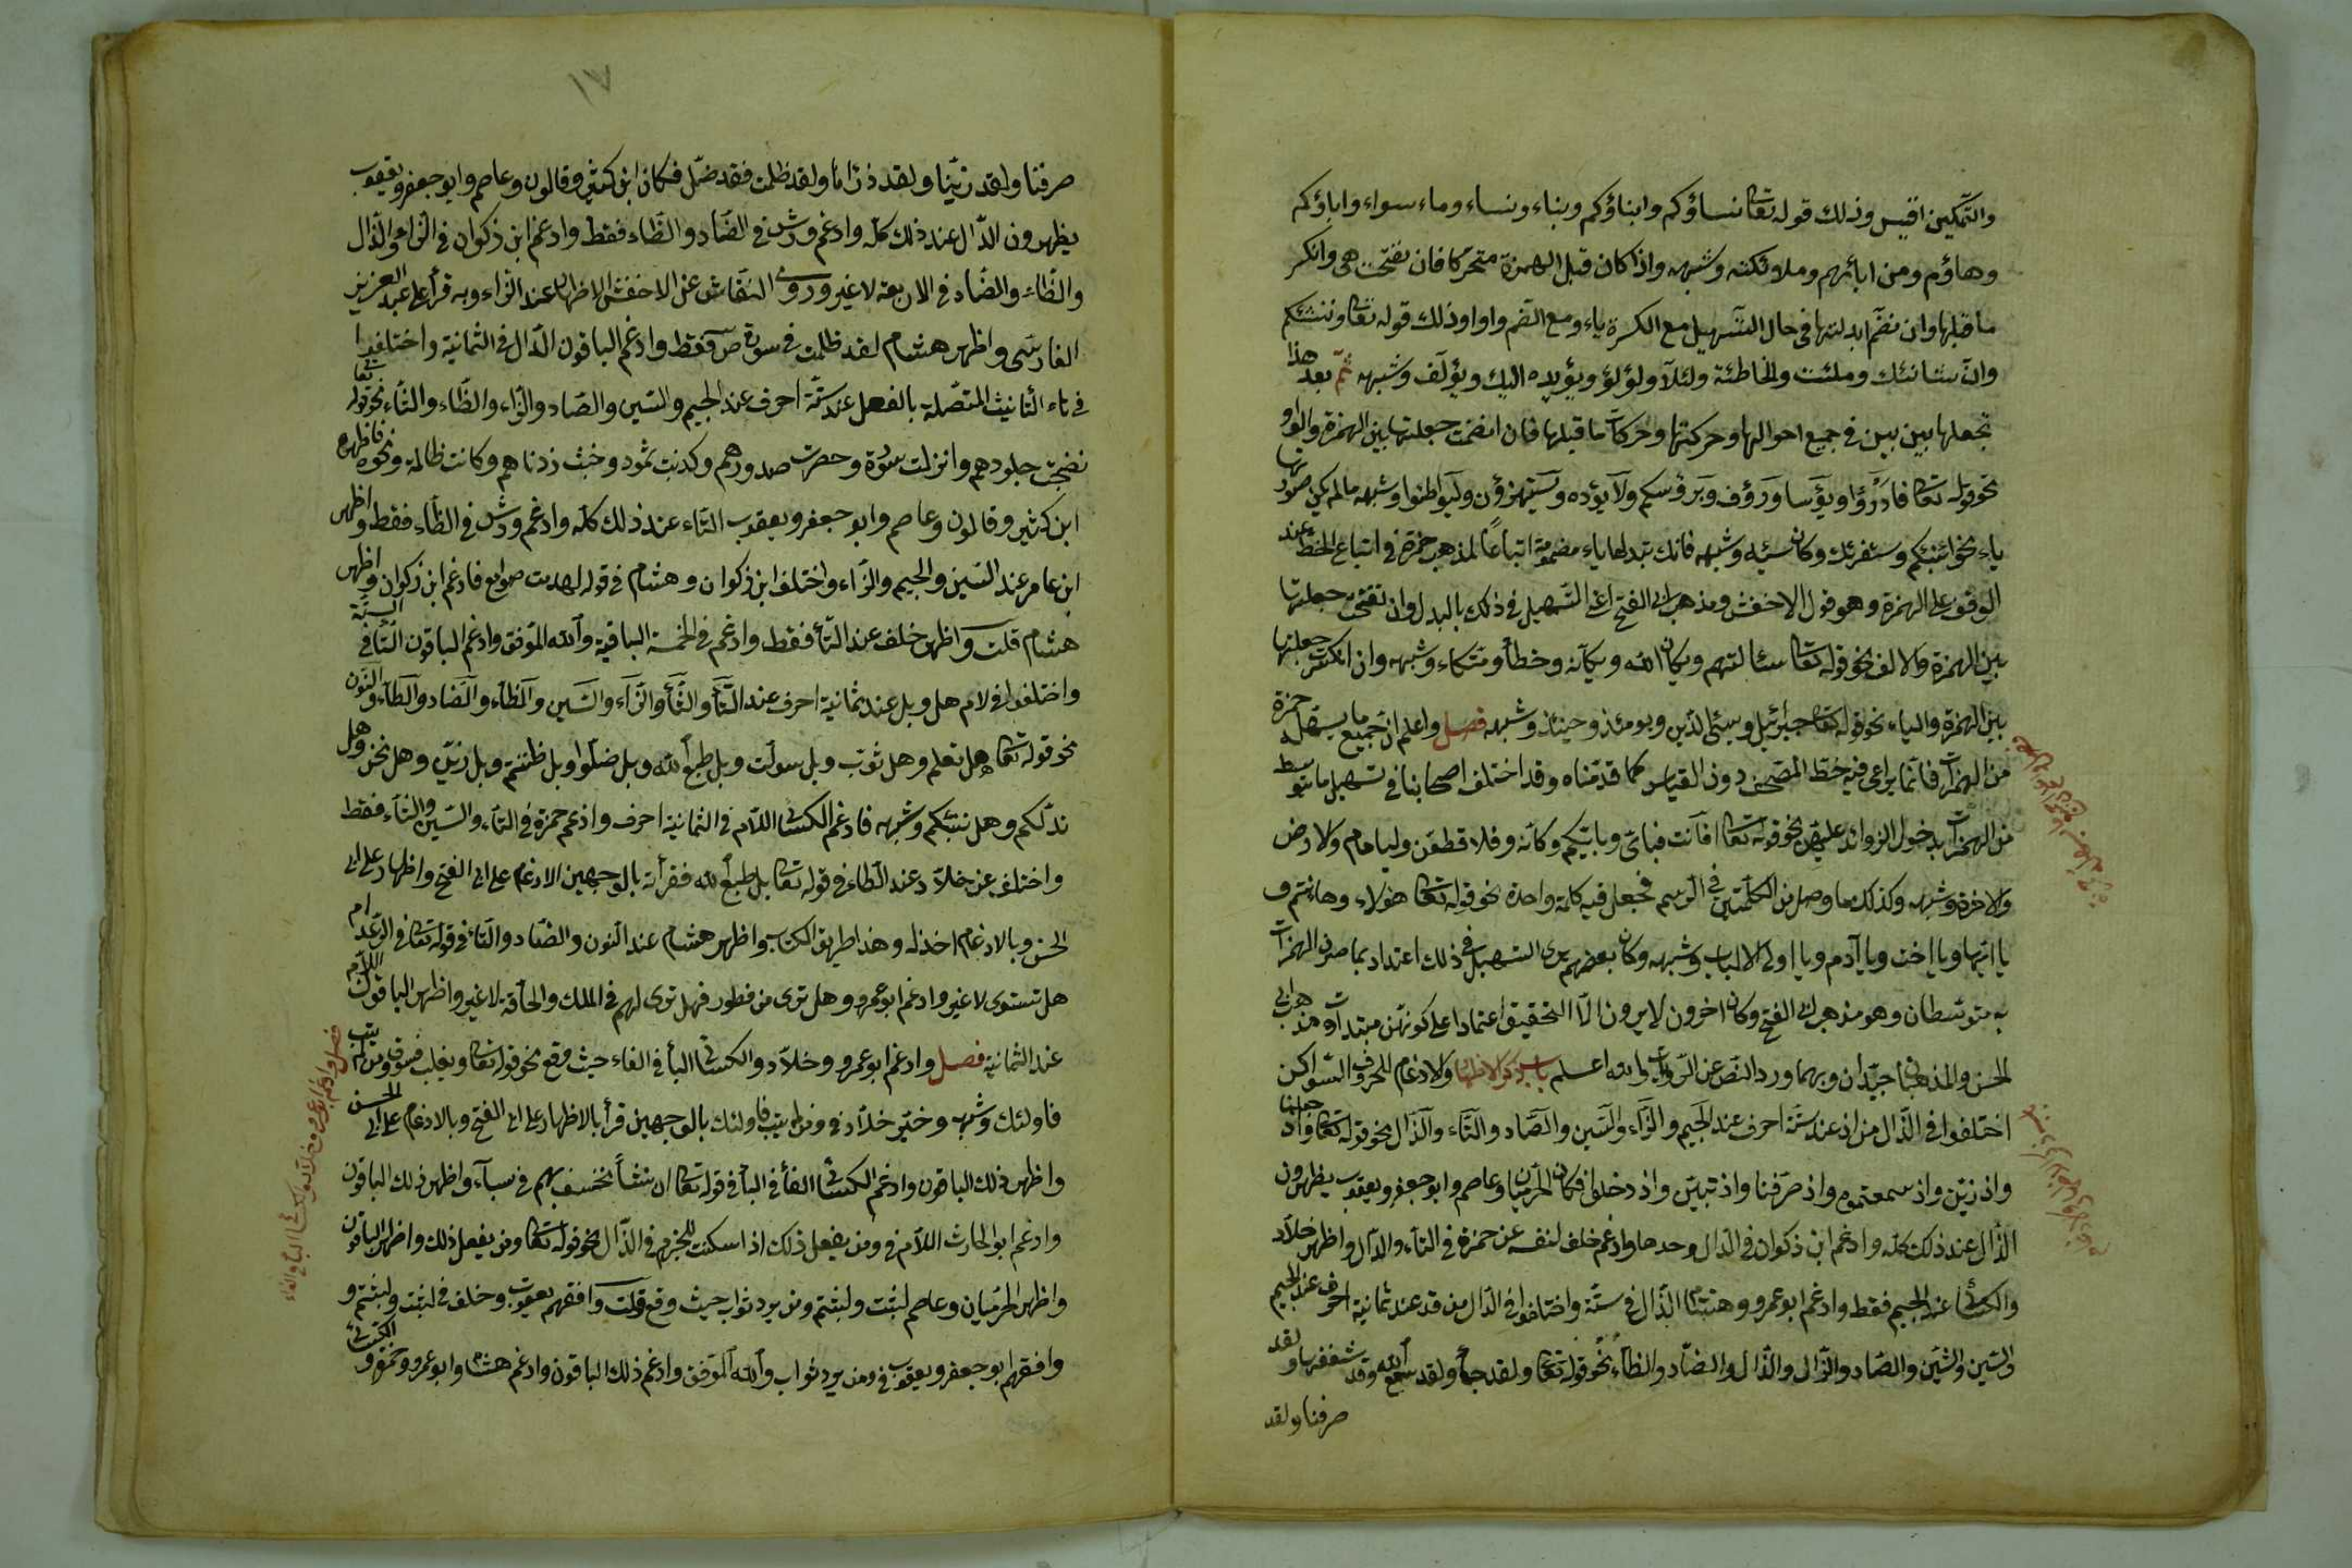 والتمكين اقيس وذلك قوله تعا نساؤكم وابناؤكم وبناء ونساء وماء سواء واباؤكم
وهاؤم ومن ابائهم وملائكته وشبهه واذا كان قبل الهمزة متحركا فان نفتحت هى وانكسر
ما قبلها وان نضم ابدلتها فى حال التسهيل مع الكسرة ياء ومع الضم واوا وذلك قوله تعا وننشئكم
وان شانئك وملئت والخاطئة ولئلا ولؤلؤ ويؤيده اليك ويؤلف وشبهه ثم بعد هذا
تجعلها بين بين فى جميع احوالها وحركتها وحركات ما قبلها فان انضمت جعلتها بين الهمزة والواو
نحو قوله تعا فادرؤا ويؤسا ورؤف وبرؤسكم ولا يؤده ويستهزؤن وليواطئوا وشبهه مالم يكن صورتها
ياء نحو انبئكم وسنقرئك وكان سيئه وشبهه فانك تبدلها ياء مضمومة اتباعا لمذهب حمزة فى اتباع الخط عند
الوقوف على الهمزة وهو قول الاخفش ومذهب ابى الفتح اعنى التسهيل فى ذلك بالبدل وان نفتحت جعلتها
بين الهمزة والالف نحو قوله تعا سئالتهم ويكان الله ويكانه وخطأ ومتكاء وشبهه وان انكسرت جعلتها
بين الهمزة والياء نحو قوله تعا جبرئيل ويئس الذين ويومئذ وحينئذ وشبهه فصل واعلم ان جميع ما يسهله حمزة
من الهمزات فانما يراعى فيه خط المصحف دون القياس كما قدمناه وقد اختلف اصحابنا فى تسهيل ما توسط
من الهمزات بدخول الزوائد عليهن نحو قوله تعا افانت فباى وبايكم وكانه وفلا قطعن ولبامام والارض
والاخرة وشبهه وكذلك ما وصل من الكلمتين فى الرسم فجعل فيه كلمة واحدة نحو قوله تعا هؤلاء وهانتم و
يا ايها ويا اخت ويا آدم ويا اولى الالباب وشبهه وكان بعضهم يرى التسهيل فى ذلك اعتدادا بما صرن الهمزات
به متوسطات وهو مذهب ابى الفتح وكان اخرون لا يرون الا التحقيق اعتمادا على كونهن مبتدات وهو مذهب ابى
الحسن والمذهبان جيدان وبهما ورد النص عن الرواة والله اعلم باب ذكر الاظهار والادغام للحروف السواكن
اختلفوا فى الذال من اذ عند ستة احرف عند الجيم والزاء والسين والصاد والتاء والدال نحو قوله تعا واذ جعلنا
واذ زين واذ سمعتموه واذ صرفنا واذ تبين واذ دخلوا فكان الحرميان وعاصم وابو جعفر ويعقوب يظهرون
الذال عند ذلك كله وادغم ابن ذكوان فى الدال وحدها وادغم خلف لنفسه عن حمزة فى التاء والدال واظهر خلاد
والكسائى عند الجيم فقط وادغم ابو عمرو وهشام الذال فى ستة واختلفوا فى الدال من قد عند ثمانية احرف عند الجيم
والسين والشين والصاد والزاى والذال والضاد والظاء نحو قوله تعا ولقد جاء ولقد سمع الله وقد شغفها ولقد
صرفنا ولقد
١٧
صرفنا ولقد زينا ولقد ذرأنا ولقد ظلمت فقد ضل فكان ابن كثير وقالون وعاصم وابو جعفر ويعقوب
يظهرون الدال عند ذلك كله وادغم ورش فى الضاد والظاء فقط وادغم ابن ذكوان فى الزاء والذال
والظاء والضاد فى الاربعة لا غير وروى النقاش عن الاخفش الاظهار عند الزاء وبه قرأ على عبد العزيز
الفارسى واظهر هشام لقد ظلمت فى سورة ص فقط وادغم الباقون الدال فى الثمانية واختلفوا
فى تاء التانيث المتصلة بالفعل عند ستة احرف عند الجيم والسين والصاد والزاء والظاء والثاء نحو قوله تعا
نضجت جلودهم وانزلت سورة وحصرت صدورهم وكذبت ثمود وخبت زدناهم وكانت ظالمة ونحوه فاظهره
ابن كثير وقالون وعاصم وابو جعفر ويعقوب التاء عند ذلك كله وادغم ورش فى الظاء فقط واظهر
ابن عامر عند السين والجيم والزاء واختلف ابن ذكوان وهشام فى قوله لهدمت صوامع فادغم ابن ذكوان واظهر
هشام قلت واظهر خلف عند الثاء فقط وادغم فى الخمسة الباقية والله الموفق وادغم الباقون التاء فى الستة
واختلفوا فى لام هل وبل عند ثمانية احرف عند التاء والثاء والزاء والسين والظاء والضاد والطاء والنون
نحو قوله تعا هل تعلم وهل ثوب وبل سولت وبل طبع الله وبل ضلوا وبل ظننتم وبل زين وهل نحن وهل
ندلكم وهل ننبئكم وشبهه فادغم الكسائى اللام فى الثمانية احرف وادغم حمزة فى التاء والسين والثاء فقط
واختلف عن خلاد عند الطاء فى قوله تعا بل طبع الله فقرأته بالوجهين الادغام على ابى الفتح واظهار على ابى
الحسن وبالادغام اخذله وهذا طريق الكتاب واظهر هشام عند النون والضاد والتاء فى قوله تعا فى الرعد ام
هل تستوى لا غير وادغم ابو عمرو وهل ترى من فطور فهل ترى لهم فى الملك والحاقة لا غير واظهر الباقون اللام
عند الثمانية فصل وادغم ابو عمرو وخلاد والكسائى الباء فى الفاء حيث وقع نحو قوله تعا ويغلب فسوف ومن لم يتب
فاولئك وشبهه وخير خلاد فى ومن لم يتب فاولئك بالوجهين قرأ بالاظهار على ابى الفتح وبالادغام على ابى الحسن
واظهر ذلك الباقون وادغم الكسائى الفاء فى الباء فى قوله تعا ان نشأ نخسف بهم فى سبأ واظهر ذلك الباقون
وادغم ابو الحارث اللام فى ومن يفعل ذلك اذا سكنت للجزم فى الذال نحو قوله تعا ومن يفعل ذلك واظهر الباقون
واظهر الحرميان وعاصم لبثت ولبثتم ومن يرد ثواب حيث وقع قلت وافقهم يعقوب وخلف فى لبثت ولبثتم و
وافقهم ابو جعفر ويعقوب فى ومن يرد ثواب والله الموفق وادغم ذلك الباقون وادغم هشام وابو عمرو وحمزة والكسائى